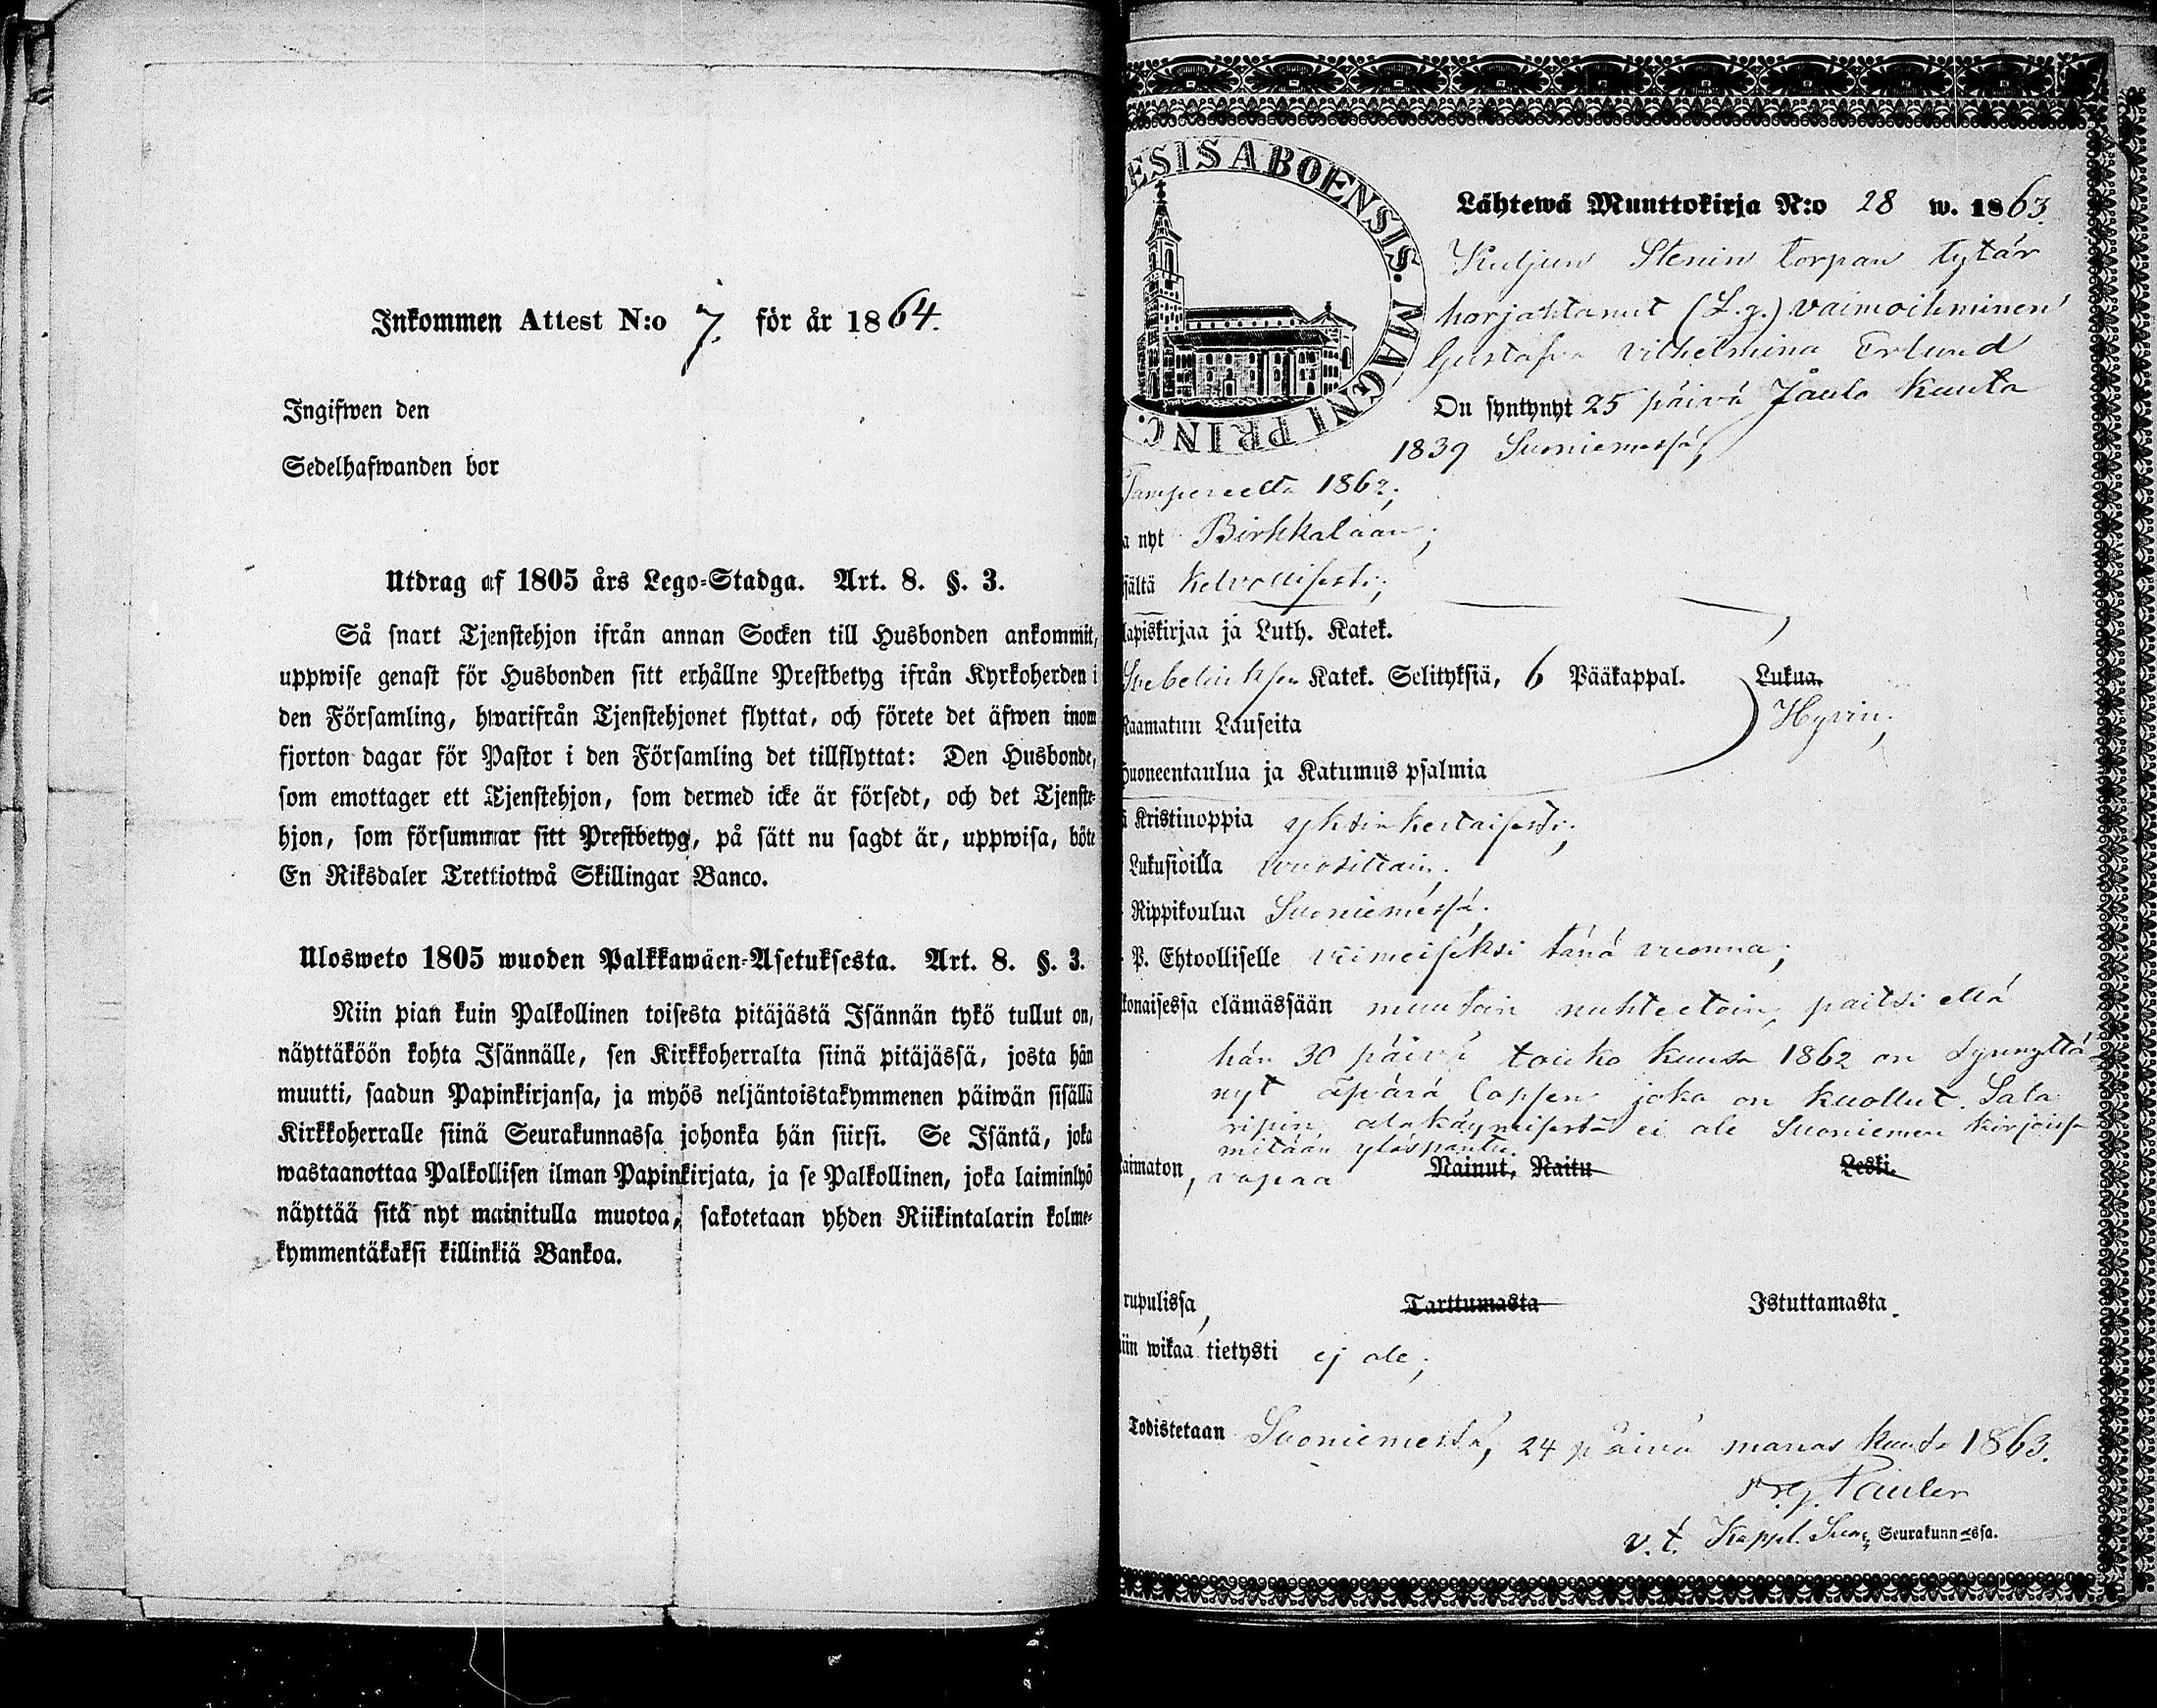 Inkommen Attest N:o 7. för år 1864.
Ingifwen den
Sedelhafwanden bor
Utdrag af 1805 års Lego-Stadga. Art. 8. §. 3.
Så snart Tjenstehjon ifrån annan Socken till Husbonden ankommit,
uppwise genast för Husbonden sitt erhållne Prestbetyg ifrån Kyrkoherden i
den Församling, hwarifrån Tjenstehjonet flyttat, och förete det äfwen inom
fjorton dagar för Pastor i den Församling det tillflyttat: Den Husbonde,
som emottager ett Tjenstehjon, som dermed icke är försedt, och det Tjenste-
hjon, som försummar sitt Prestbetyg, på sätt nu sagdt är, uppwisa, böte
En Riksdaler Trettiotwå Skillingar Banco.
Ulosweto 1805 wuoden Palkkawäen-Asetuksesta. Art. 8. §. 3.
Niin pian kuin Palkollinen toisesta pitäjästä Isännän tykö tullut on,
näyttäköön kohta Isännälle, sen Kirkkoherralta siinä pitäjässä, josta hän
muutti, saadun Papinkirjansa, ja myös neljäntoistakymmenen päiwän sisällä
Kirkkoherralle siinä Seurakunnassa johonka hän siirsi. Se Isäntä, joka
wastaanottaa Palkollisen ilman Papinkirjata, ja se Palkollinen, joka laiminlyö
näyttää sitä nyt mainitulla muotoa, sakotetaan yhden Riikintalarin kolme-
kymmentäkaksi killinkiä Bankoa.
ESIS ABOENSIS. MAGNI PRINC.
Lähtewä Muuttokirja N:o 28 w. 1863.
Kuljun Stenin torpan tytär
horjahtanut (L. g.) vaimoihminen
Gustafva Vilhelmina Erlund
On syntynyt 25 päivä Joulu kuuta
1839 Suoniemessä,
Tampereelta 1862;
a nyt Birkkalaan;
sältä kelvollisesti;
lapiskirjaa ja Luth. Katek.
Svebeliuksen Katek. Selityksiä, 6 Pääkappal. Lukua.
Hyvin;
Raamatun Lauseita
Huoneentaulua ja Katumus psalmia
ä Kristinoppia yksinkertaisesti;
Lukusioilla wuosittain.
Rippikoulua Suoniemessä.
P. Ehtoolliselle viimeiseksi tänä vuonna;
konaisessa elämässään muutoin nuhteetoin, paitsi että
hän 30 päivä touko kuuta 1862 on synnyttä-
nyt äpärä lapsen joka on kuollut. Sala
ripin alakäymisestä ei ole Suoniemen kirjoissa
mitään ylöspantu.
aimaton, vapaa Nainut, Naitu Leski.
rupulissa, Tarttumasta Istuttamasta.
iin wikaa tietysti ej ole;
Todistetaan Suoniemessä, 24 päivä marras kuuta 1863.
Pauler
v. t. Kappl. Suon: Seurakunnassa.